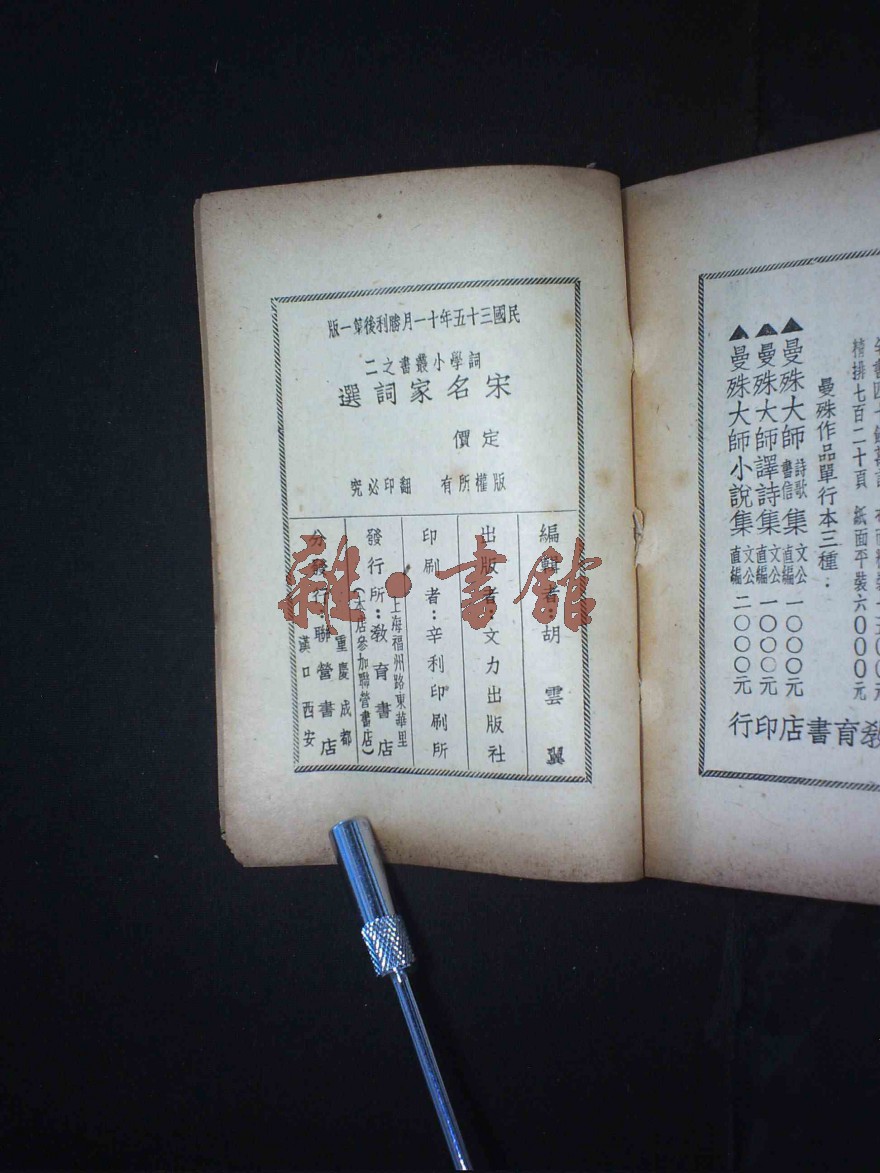 民國三十五年十一月勝利後第一版
詞學小叢書之二
宋名家詞選
定價
版權所有 翻印必究
編輯者：胡雲翼
出版者：文力出版社
印刷者：辛利印刷所
發行所：教育書店
上海福州路東華里
（本店參加聯營書店）
分發行：聯營書店
重慶 成都
漢口 西安
雜·書館
精排七百二十頁 紙面平裝六〇〇〇元
曼殊作品單行本三種：
▲曼殊大師詩歌書信集 文公直編 一〇〇〇元
▲曼殊大師譯詩集 文公直編 一〇〇〇元
▲曼殊大師小說集 文公直編 二〇〇〇元
教育書店印行